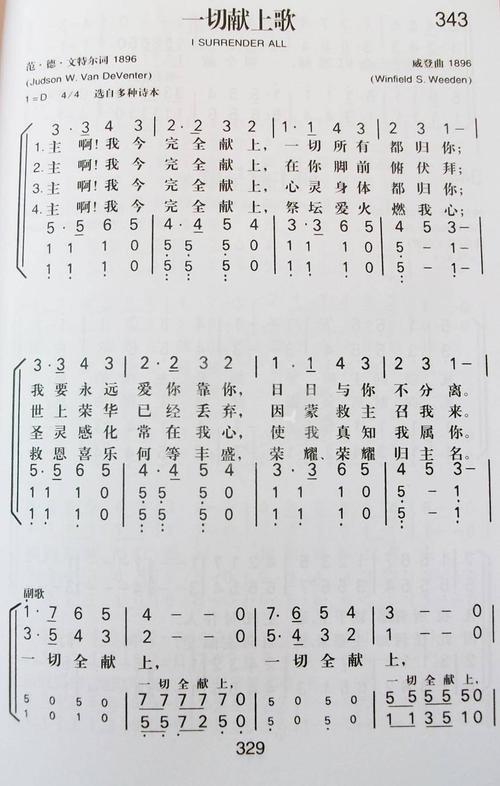 一切献上歌 343
I SURRENDER ALL
范·德·文特尔词 1896 威登曲 1896
(Judson W. Van DeVenter) (Winfield S. Weeden)
1=D 4/4 选自多种诗本
3·3 4 3 | 2·2 3 2 | 1·1 4 3 | 2 3 1–
1.主 啊!我今 完全献上, 一切所有 都归你;
2.主 啊!我今 完全献上, 在你脚前 俯伏拜;
3.主 啊!我今 完全献上, 心灵身体 都归你;
4.主 啊!我今 完全献上, 祭坛爱火 燃我心;
5·5 6 5 | 4·4 5 4 | 3·3 6 5 | 4 5 3–
1 1 1 0 | 5 5 5 0 | 1 1 1 0 | 5 – 1 –
1 1 1 0 | 5 5 5 0 | 1 1 1 0 | 5 – 1 –
3·3 4 3 | 2·2 3 2 | 1·1 4 3 | 2 3 1–
我要永远 爱你靠你, 日日与你 不分离。
世上荣华 已经丢弃, 因蒙救主 召我来。
圣灵感化 常在我心, 使我真知 我属你。
救恩喜乐 何等丰盛, 荣耀、荣耀 归主名。
5·5 6 5 | 4·4 5 4 | 3·3 6 5 | 4 5 3–
1 1 1 0 | 5 5 5 0 | 1 1 1 0 | 5 – 1
1 1 1 0 | 5 5 5 0 | 1 1 1 0 | 5 – 1
副歌
1·7 6 5 | 4 – – 0 | 7·6 5 4 | 3 – – 0
3·5 4 3 | 2 – – 0 | 5·4 3 2 | 1 – – 0
一切全献 上, 一切全献 上,
一切全献上, 一切全献上,
5 0 5 0 | 7 7 7 7 7 0 | 5 0 5 0 | 5 5 5 5 5 0
1 0 1 0 | 5 5 7 2 5 0 | 5 0 5 0 | 1 1 3 5 1 0
329